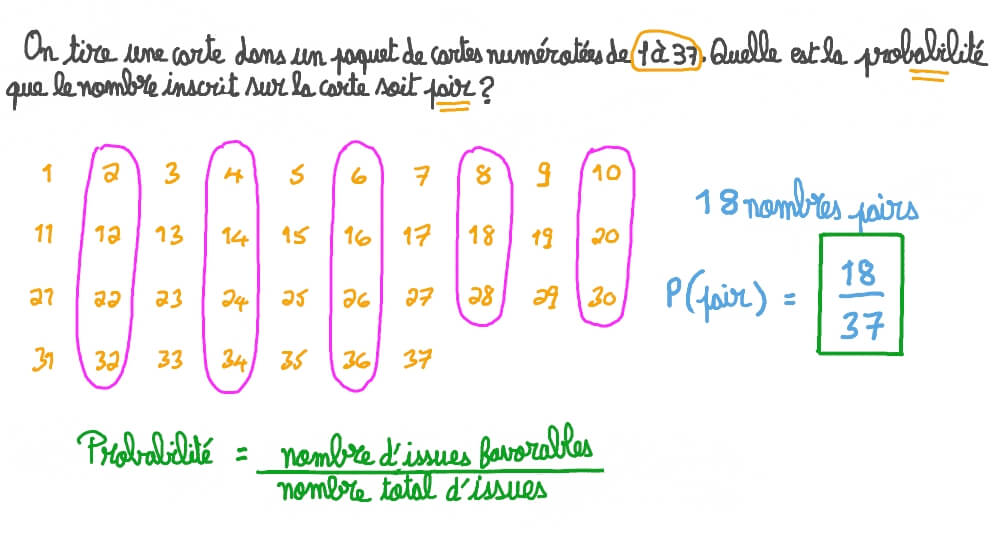 On tire une carte dans un paquet de cartes numérotées de 1 à 37. Quelle est la probabilité
que le nombre inscrit sur la carte soit pair ?
1 2 3 4 5 6 7 8 9 10
11 12 13 14 15 16 17 18 19 20
21 22 23 24 25 26 27 28 29 30
31 32 33 34 35 36 37
18 nombres pairs
P(pair) = 18/37
Probabilité = nombre d'issues favorables
nombre total d'issues